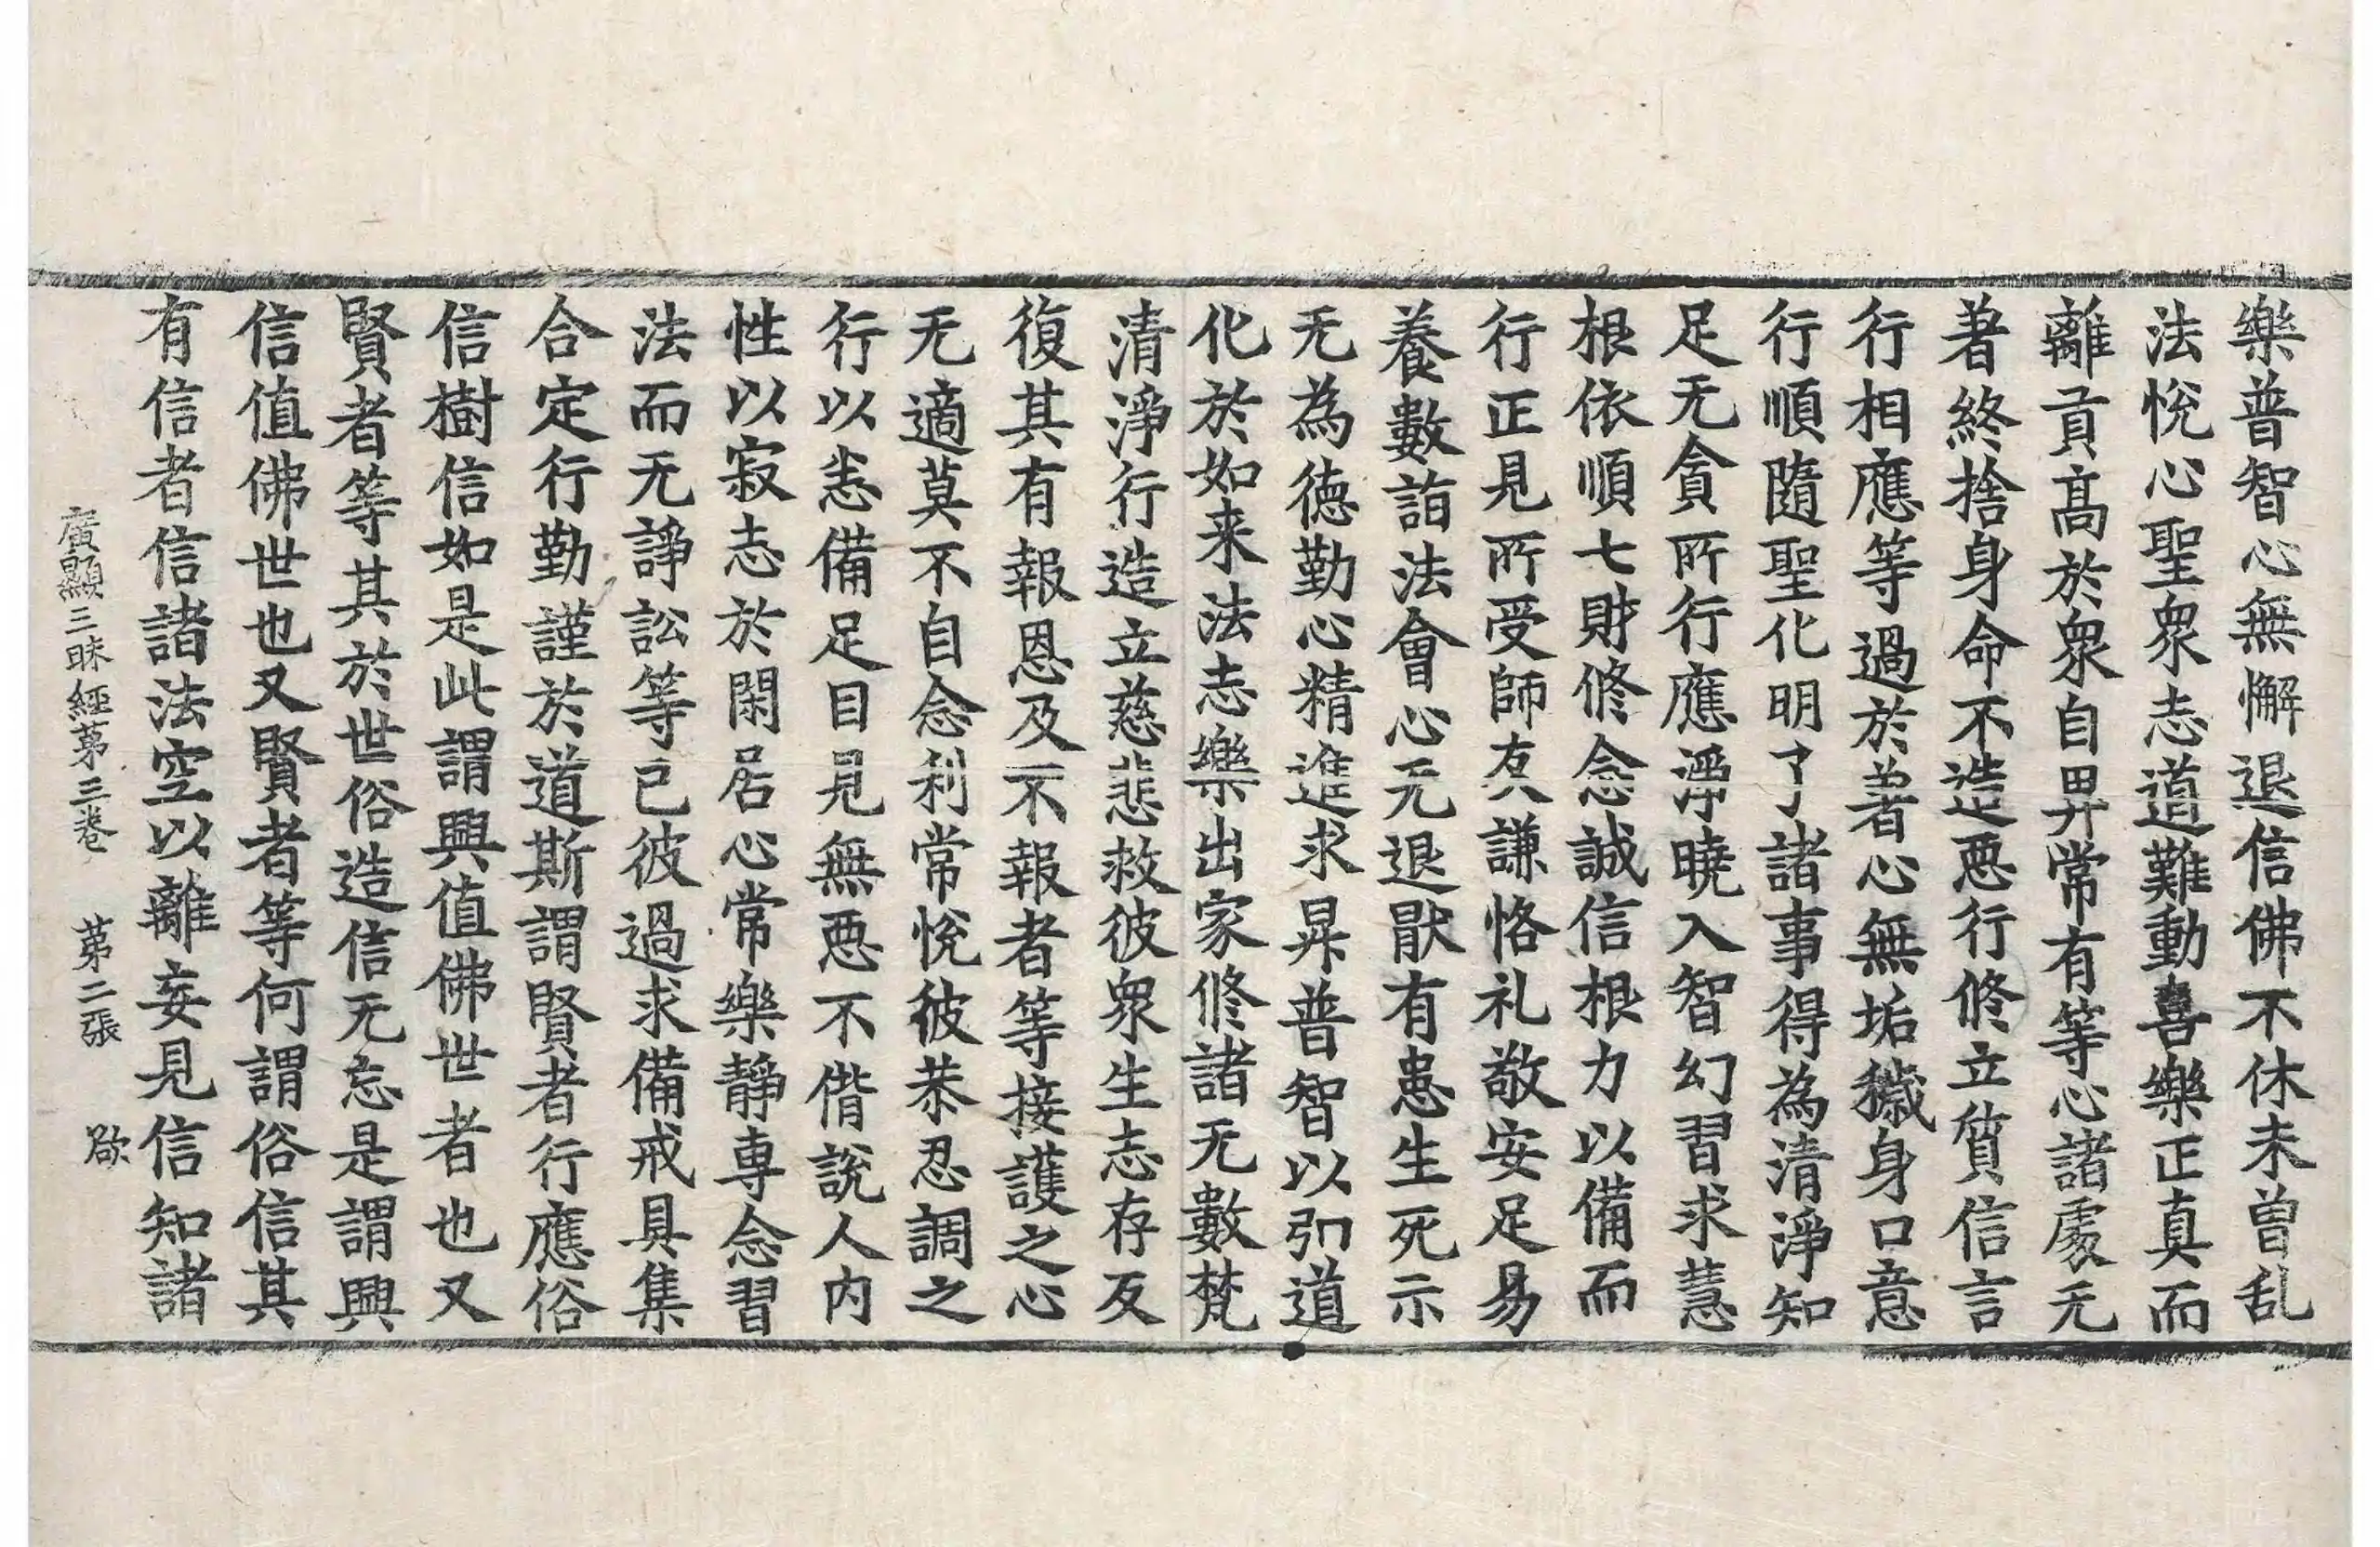 樂普智心無懈退信佛不休未曾乱
法恱心聖衆志道難動喜樂正真而
離貢高於衆自畀常有等心諸處无
著終捨身命不造惡行修立質信言
行相應等過於著心無垢穢身口意
行順隨聖化明了諸事得為清淨知
足无貪所行應淨曉入智幻習求慧
根依順七財修念誠信根力以備而
行正見所受師友謙恪礼敬安足易
養數詣法會心无退厭有患生死示
无為德勤心精進求昇普智以引道
化於如来法志樂出家修諸无數梵
清淨行造立慈悲救彼衆生志存反
復其有報恩及不報者等接護之心
无適莫不自念利常恱彼恭忍調之
行以恙備足目見無惡不偕說人内
性以寂志於閑居心常樂靜專念習
法而无諍訟等已彼過求備戒具集
合定行勤謹於道斯謂賢者行應俗
信樹信如是此謂興值佛世者也又
賢者等其於世俗造信无忘是謂興
信值佛世也又賢者等何謂俗信其
有信者信諸法空以離妄見信知諸
廣顯三昧經苐三卷 苐二張